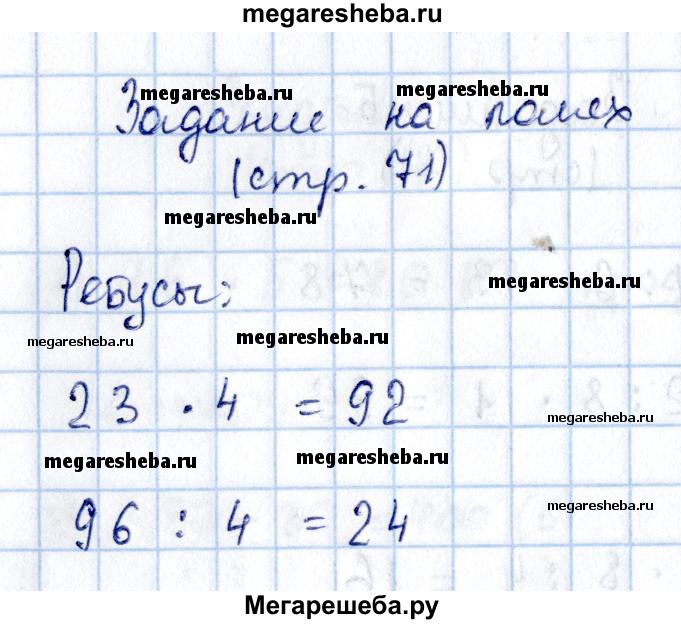 megaresheba.ru
megaresheba.ru megaresheba.ru
Задание на полях
(стр. 71)
megaresheba.ru
megaresheba.ru
Ребусы:
megaresheba.ru megaresheba.ru
23 · 4 = 92
megaresheba.ru
megaresheba.ru megaresheba.ru
96 : 4 = 24
megaresheba.ru
Мегарешеба.ру